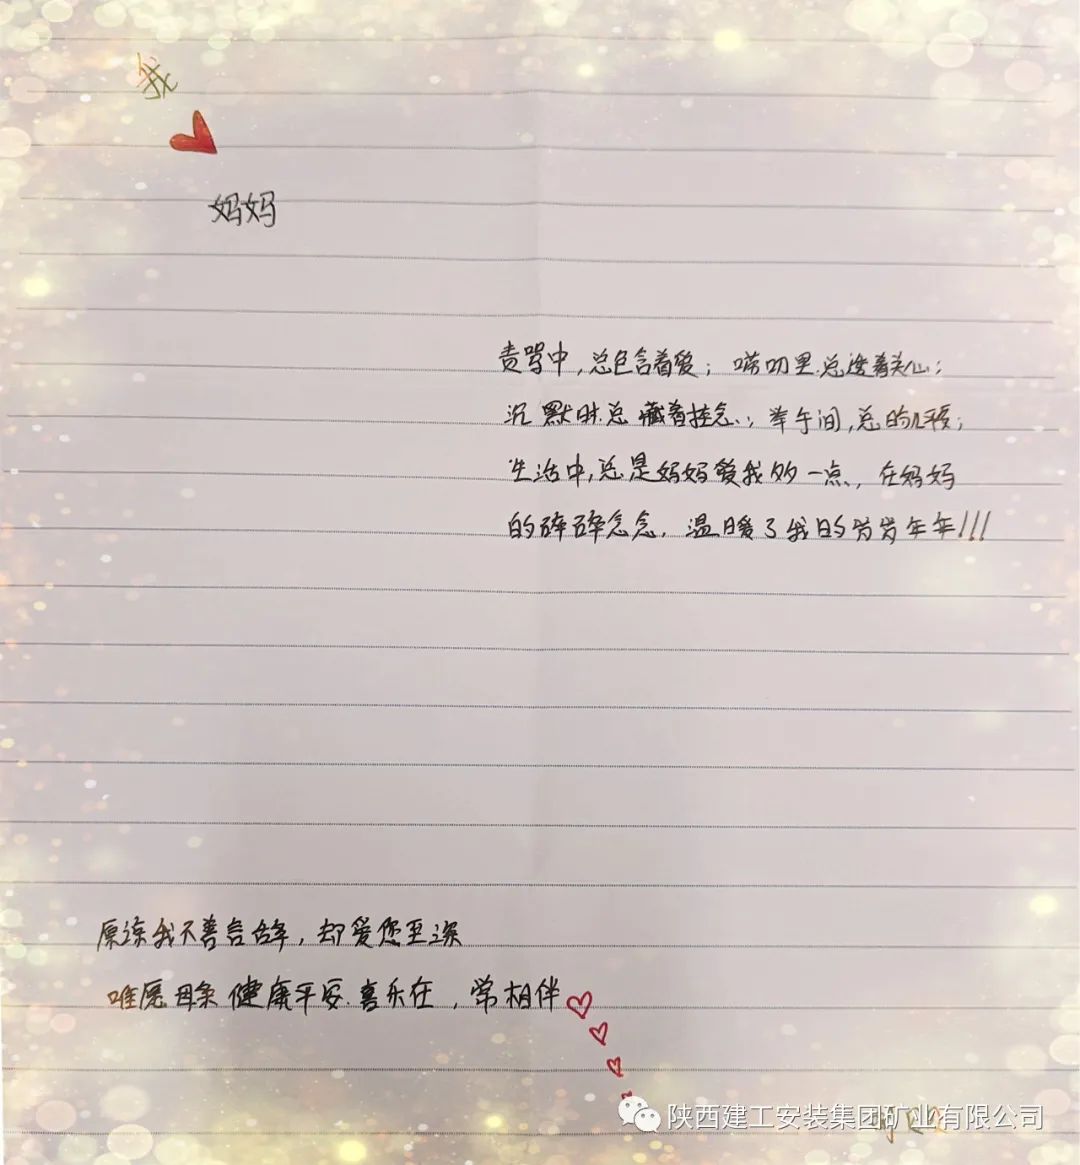 我
妈妈
责骂中,总包含着爱;唠叨里.总透着关心;
沉默时.总藏着挂念.;举手间,总的
生活中,总是妈妈爱我多一点,在妈妈
的碎碎念念.温暖了我的岁岁年年!!!
原谅我不善言辞,却爱您至深
唯愿母亲健康平安.喜乐在,常相伴
陕西建工安装集团矿业有限公司